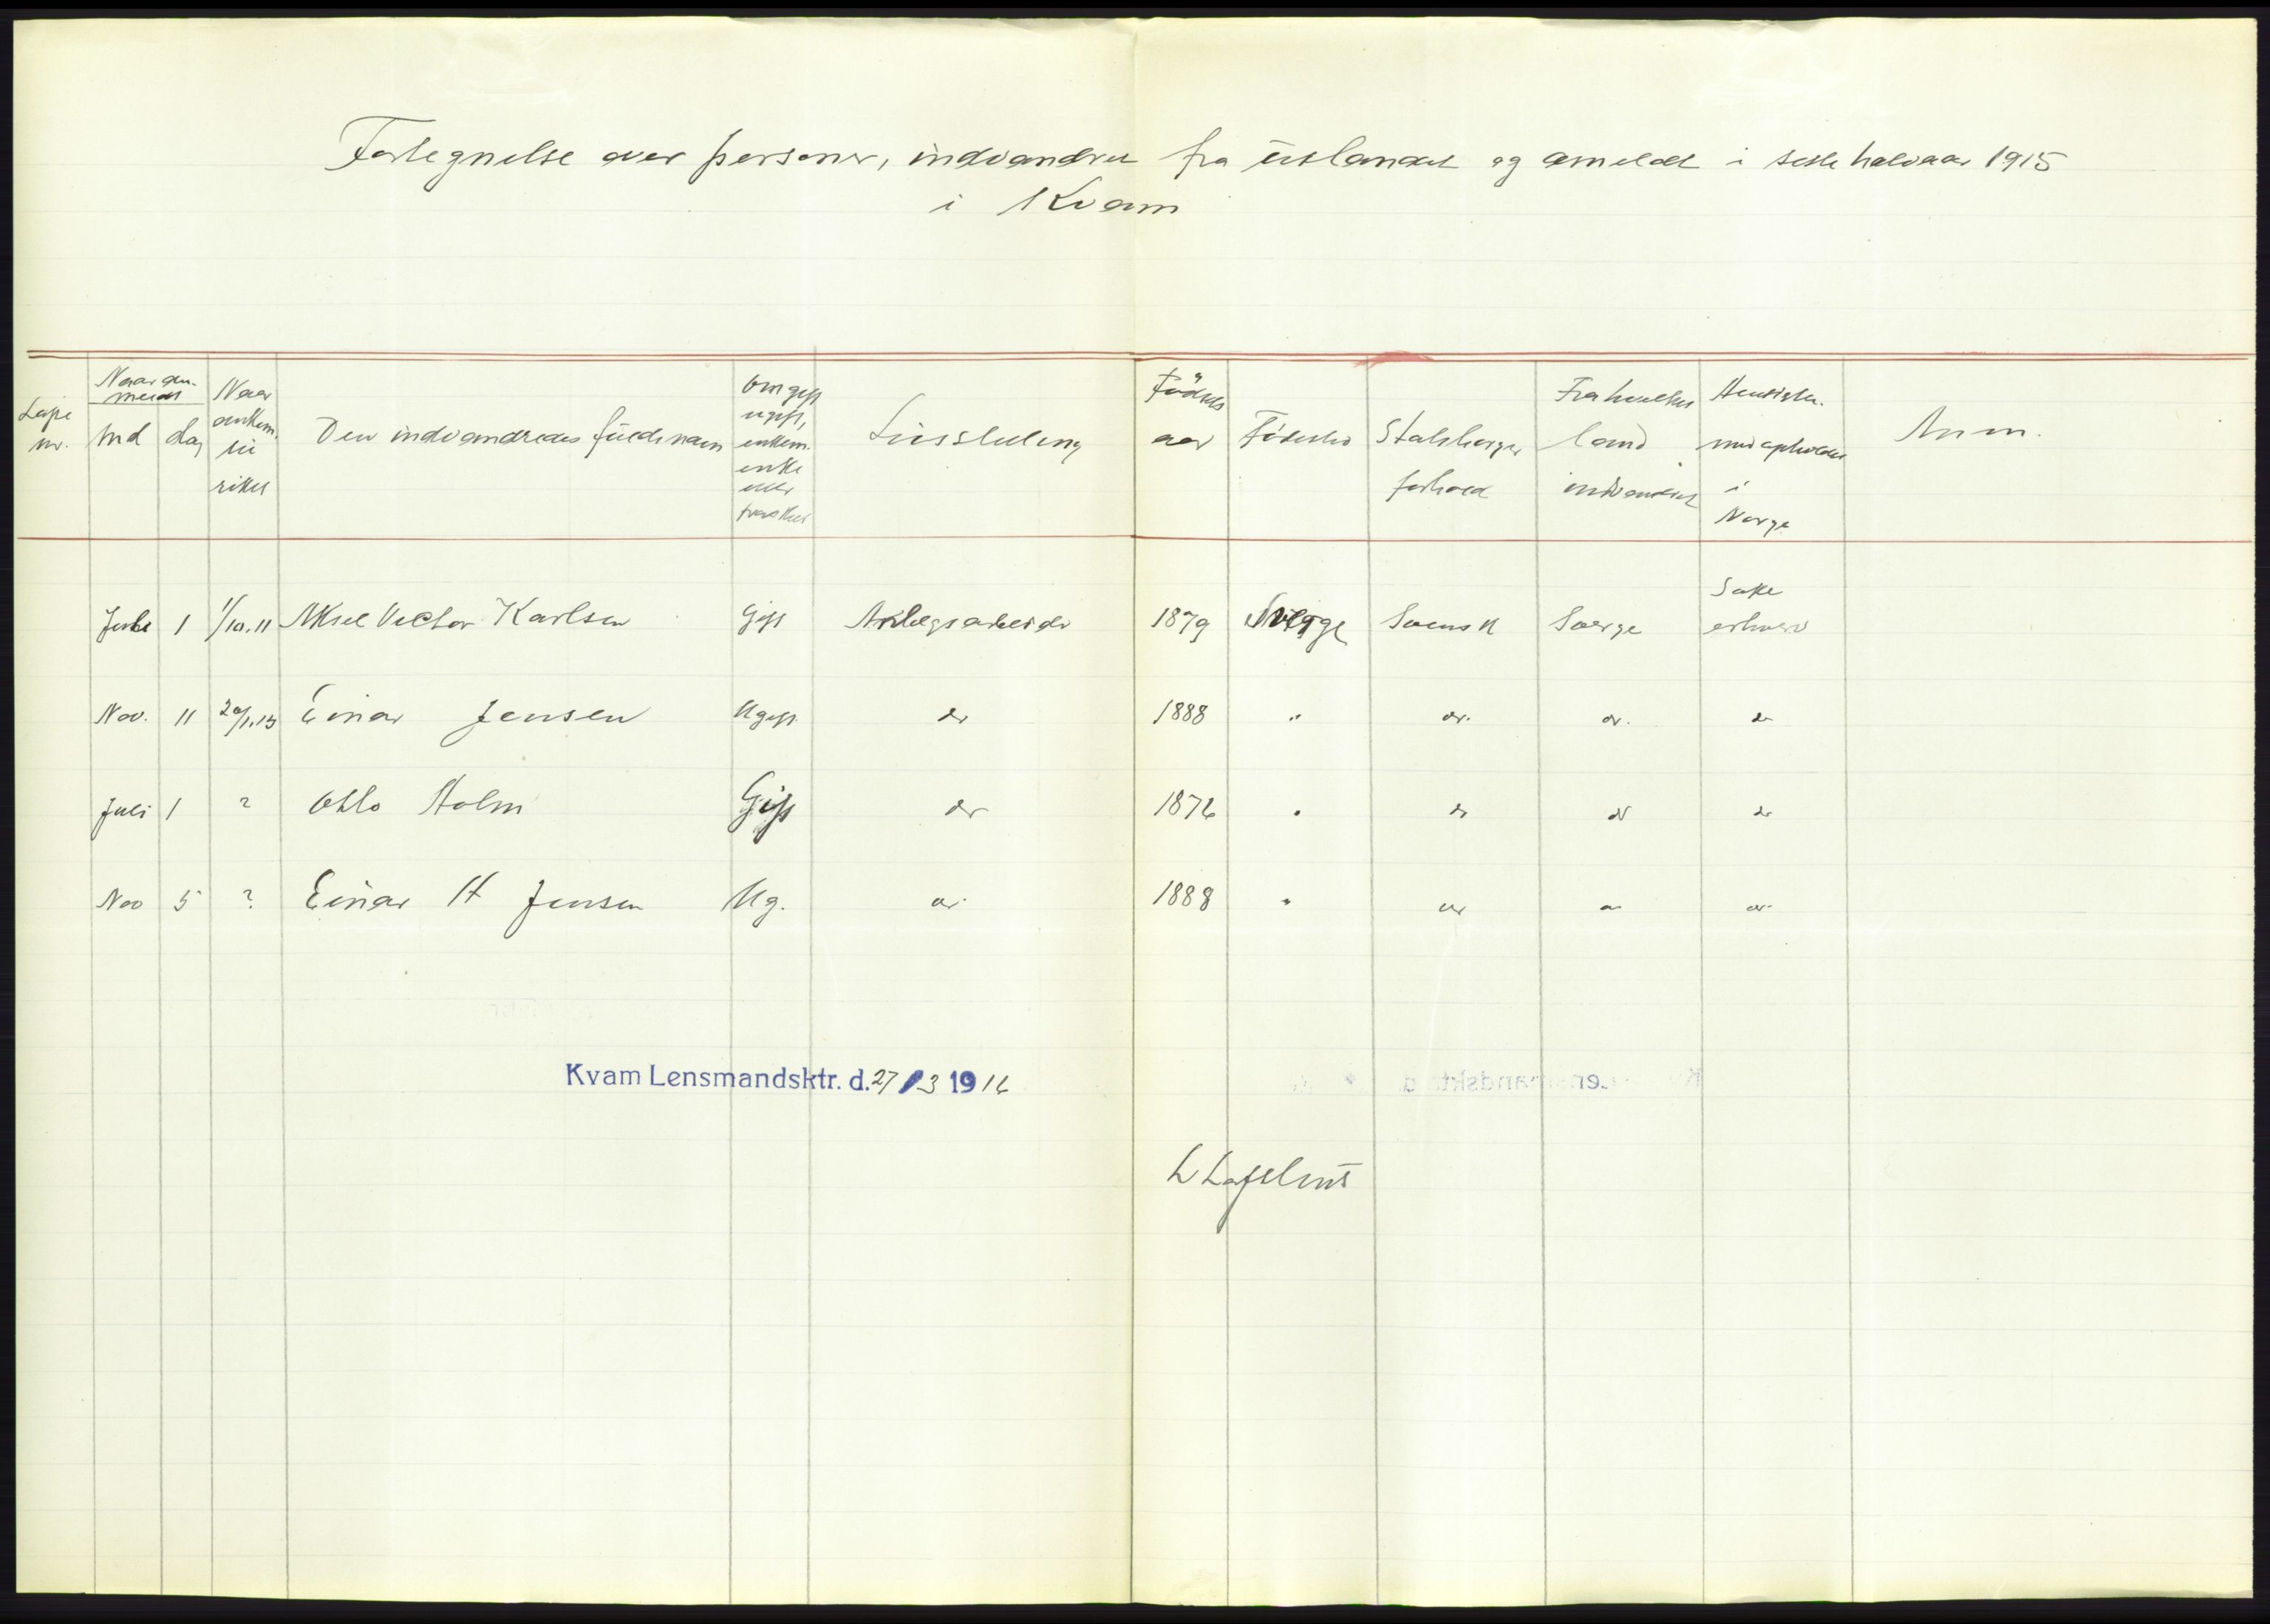 Fortegnelse over personer, indvandret fra utlandet og anmeldt i siste halvaar 1915
i Kvam
Løpe nr.
Naar anmeldt
Md
dag
Naar ankom. til riket
Den indvandredes fulde navn
Om gift, ugift, enkem. enke eller fraskilt
Livsstilling
Fødsels aar
Fødested
Statsborger forhold
Fra hvilket land indvandret
Hensigten med opholdet i Norge
Anm.
1 1/10.11 Aksel Victor Karlsen Gift Anlegsarbeider 1879 Sverige Svensk Sverge Søke erhverv
Nov. 11 Einar Jensen Ugift do 1888 " do. do. do
Juli 1 ? Otto Holm Gift do 1876 " do do do
Nov 5 ? Einar H Jensen Ug. do 1888 " do do do
Kvam Lensmandsktr. d. 27/3 1916